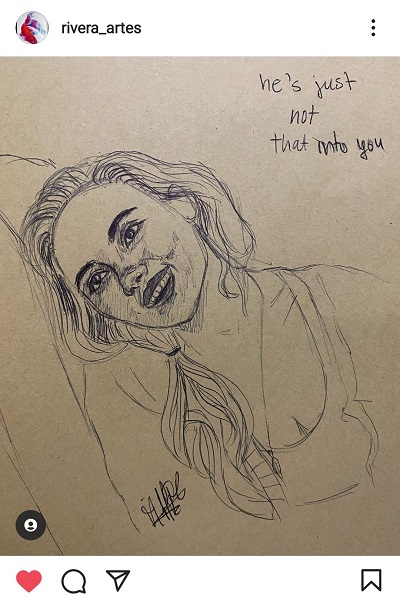 rivera_artes
he's just
not
that into you